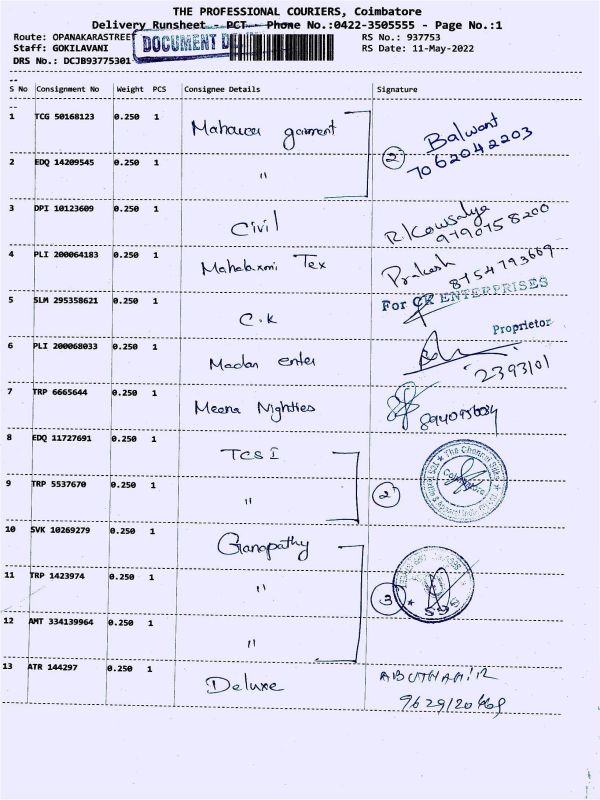 THE PROFESSIONAL COURIERS, Coimbatore
Delivery Runsheet - PCT - Phone No.:0422-3505555 - Page No.:1
Route: OPANAKARASTREET
RS No.: 937753
Staff: GOKILAVANI
DOCUMENT
RS Date: 11-May-2022
DRS No.: DCJB93775301
S No Consignment No Weight PCS Consignee Details Signature
1 TCG 50168123 0.250 1 Mahaveer garment Balwant
7062042203
2 EDQ 14209545 0.250 1 " 2
3 DPI 10123609 0.250 1 Civil R. Kowsalya
9790758200
4 PLI 200064183 0.250 1 Mahalaxmi Tex Prakash
8754793669
5 SLM 295358621 0.250 1 C.K For CK ENTERPRISES
Proprietor
6 PLI 200068033 0.250 1 Madan enter
2393101
7 TRP 6665644 0.250 1 Meena Nighties
8 EDQ 11727691 0.250 1 TCS I
The Chennai Silks
Coimbatore
9 TRP 5537670 0.250 1 " 2
10 SVK 10269279 0.250 1 Ganapathy
11 TRP 1423974 0.250 1 " 3
12 AMT 334139964 0.250 1 "
13 ATR 144297 0.250 1 Deluxe ABUTHAHIR